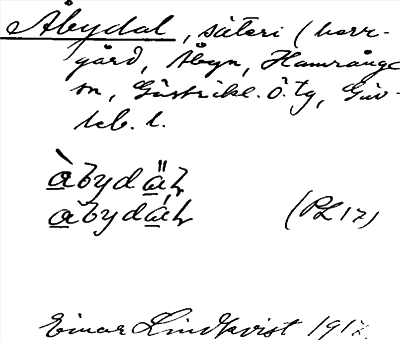 Åbydal, säteri (herr-
gård, Åbyn, Hamrånge
sn, Gästrikl. ö. tg, Gäv-
leb. l.
(PL 17)
Einar Lindkvist 1917.